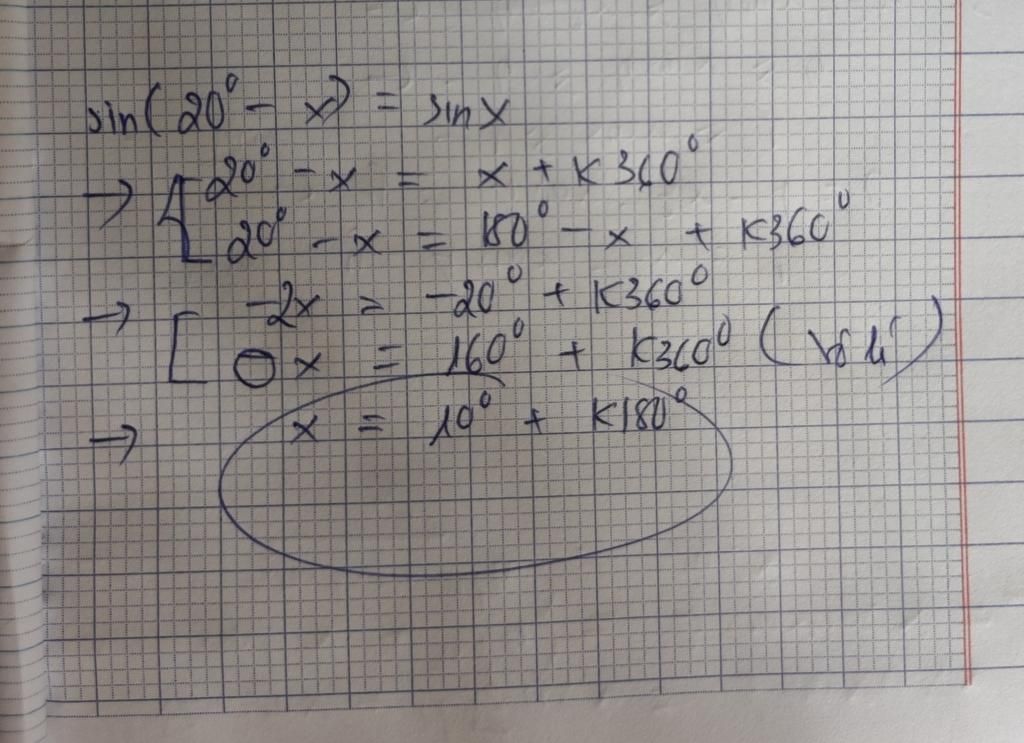 sin(20° - x) = sin x
→ [ 20° - x = x + K360°
20° - x = 180° - x + K360°
→ [ -2x = -20° + K360°
0x = 160° + K360° (Vô lí)
→ x = 10° + K180°